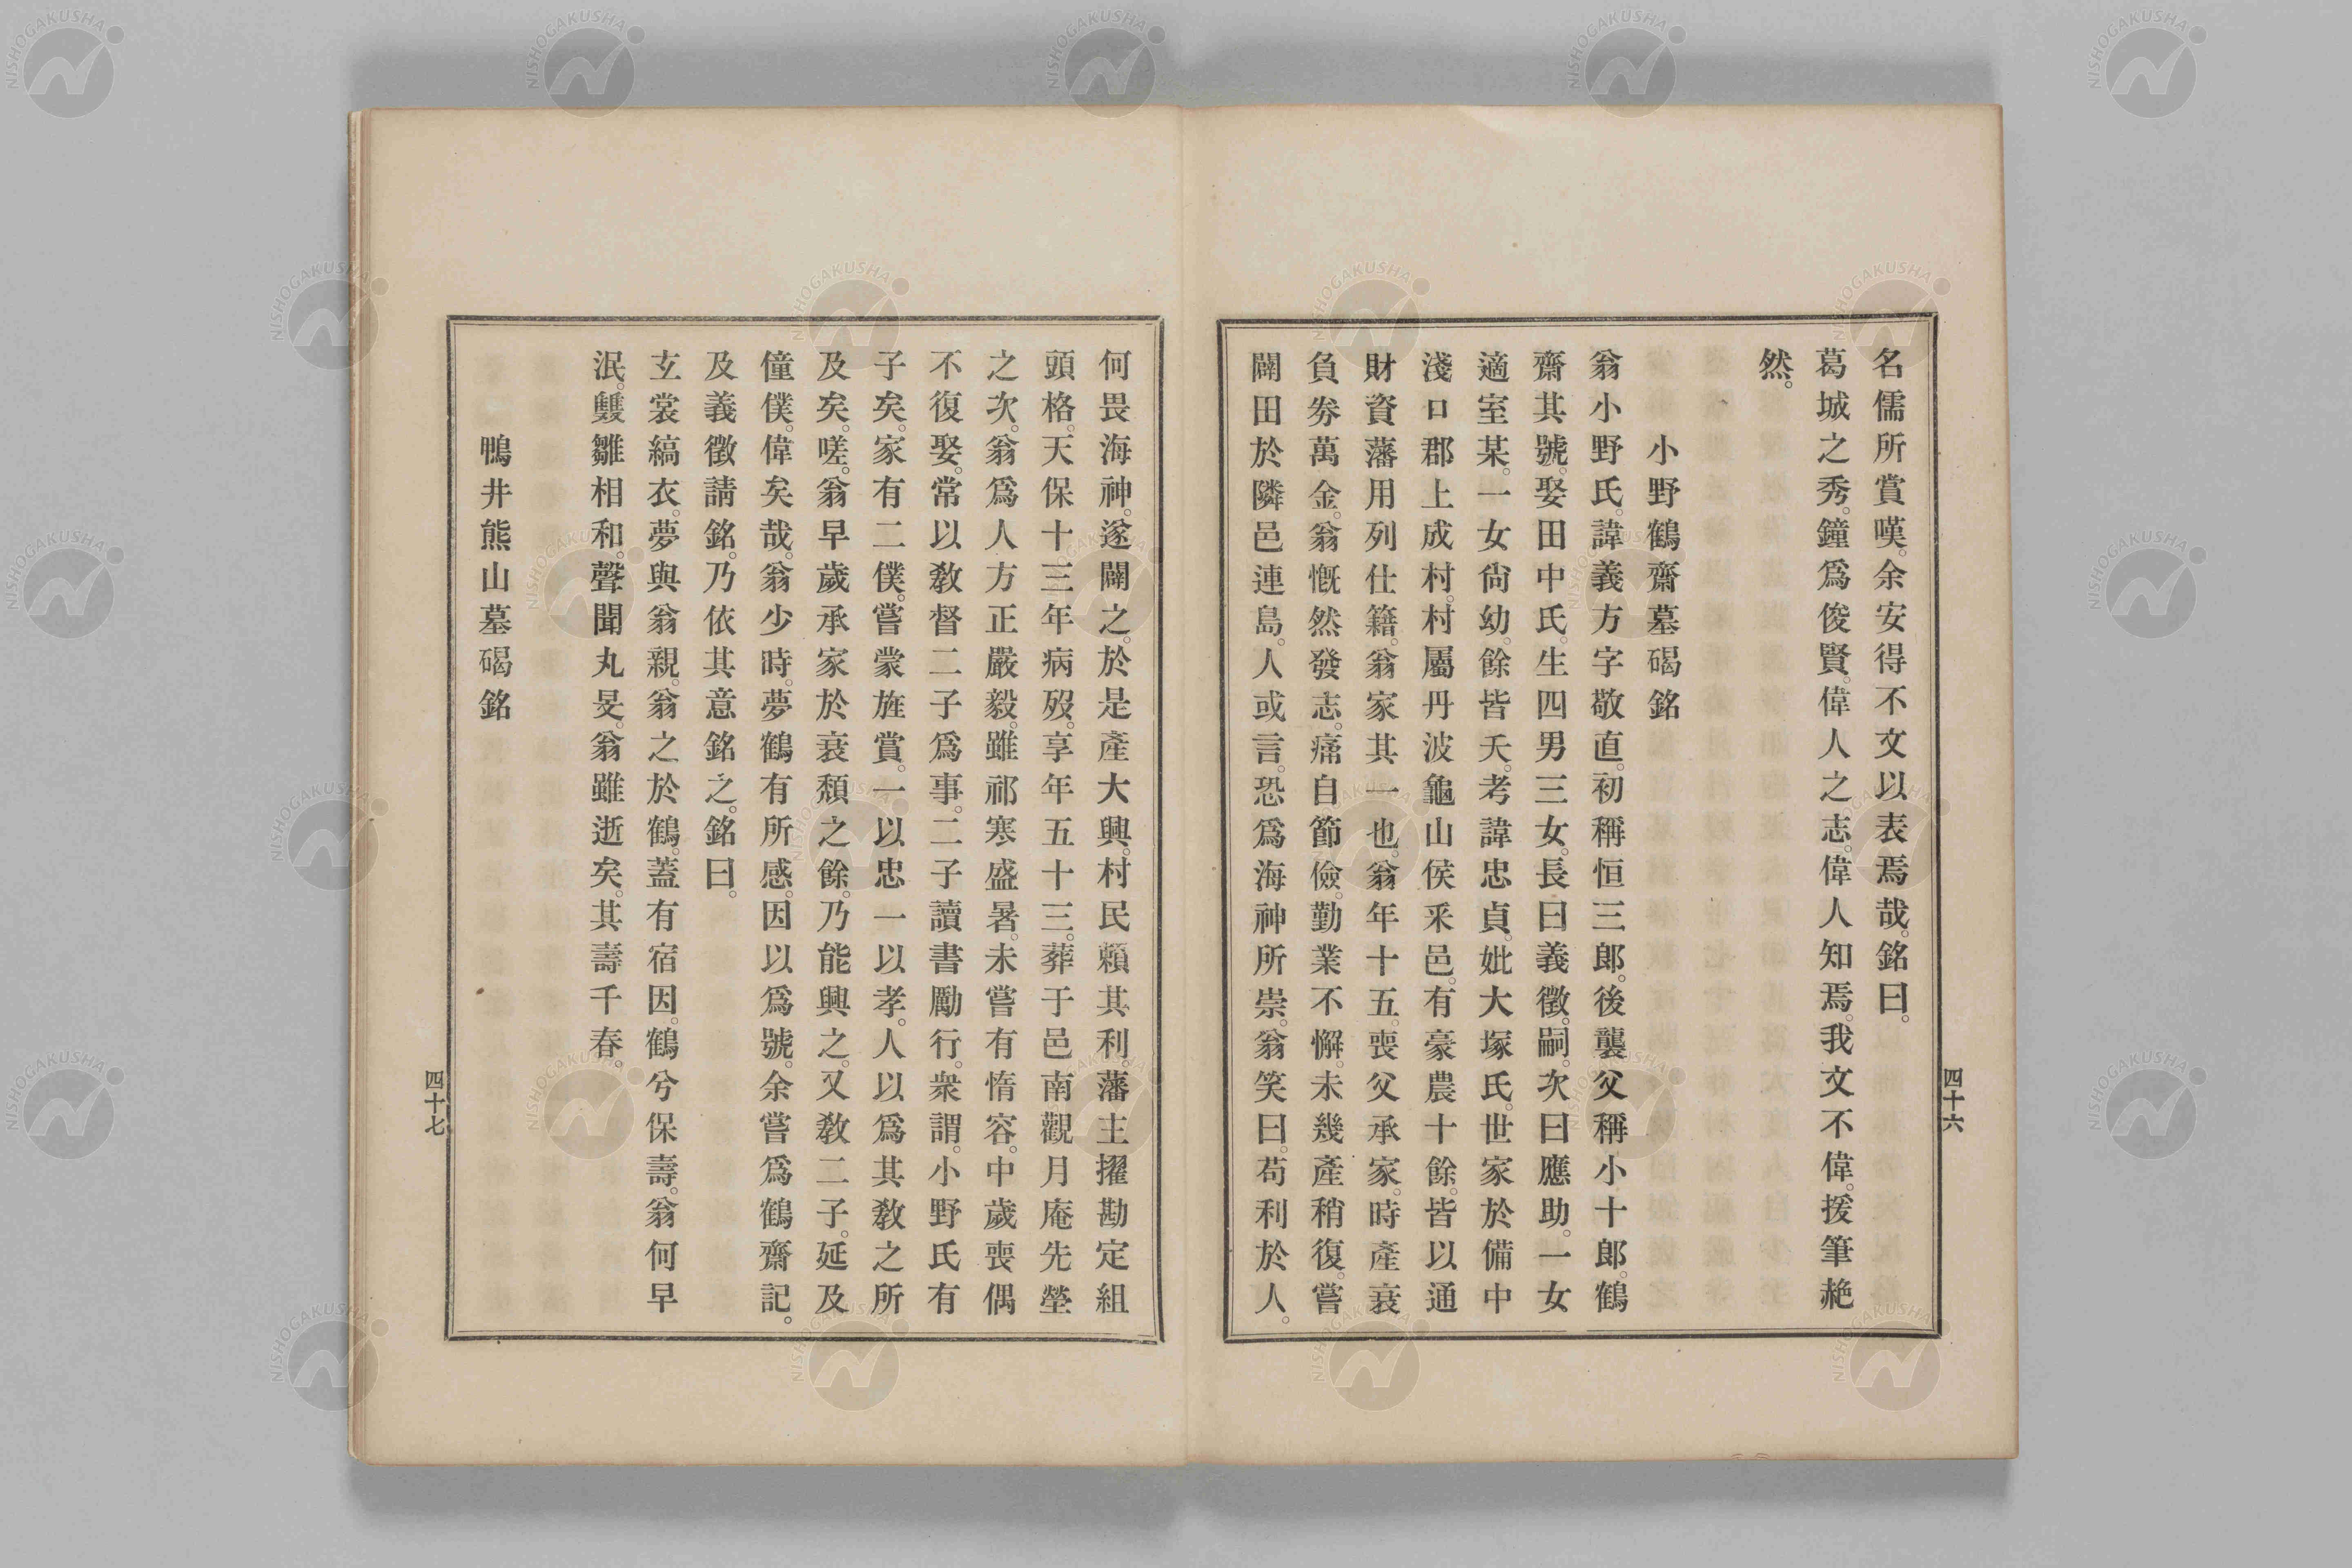 名儒所賞嘆。余安得不文以表焉哉。銘曰。
葛城之秀。鐘爲俊賢。偉人之志。偉人知焉。我文不偉。援筆赧
然。
小野鶴齋墓碣銘
翁小野氏。諱義方字敬直。初稱恒三郎。後襲父稱小十郎。鶴
齋其號。娶田中氏。生四男三女。長曰義徵。嗣。次曰應助。一女
適室某。一女尙幼。餘皆夭。考諱忠貞。妣大塚氏。世家於備中
淺口郡上成村。村屬丹波龜山侯釆邑。有豪農十餘。皆以通
財資藩用列仕籍。翁家其一也。翁年十五。喪父承家。時產衰
負劵萬金。翁慨然發志。痛自節儉。勤業不懈。未幾產稍復。嘗
闢田於隣邑連島。人或言。恐爲海神所崇。翁笑曰。苟利於人。
四十六
何畏海神。遂闢之。於是產大興。村民賴其利。藩主擢勘定組
頭格。天保十三年病歿。享年五十三。葬于邑南觀月庵先塋
之次。翁爲人方正嚴毅。雖祁寒盛暑。未嘗有惰容。中歲喪偶
不復娶。常以敎督二子爲事。二子讀書勵行。衆謂。小野氏有
子矣。家有二僕。嘗蒙旌賞。一以忠一以孝。人以爲其敎之所
及矣。嗟。翁早歲承家於衰頹之餘。乃能興之。又敎二子。延及
僮僕。偉矣哉。翁少時。夢鶴有所感。因以爲號。余嘗爲鶴齋記。
及義徵請銘。乃依其意銘之。銘曰。
玄裳縞衣。夢與翁親。翁之於鶴。蓋有宿因。鶴兮保壽。翁何早
泯。雙雛相和。聲聞丸旻。翁雖逝矣。其壽千春。
鴨井熊山墓碣銘
四十七
NISHOGAKUSHA